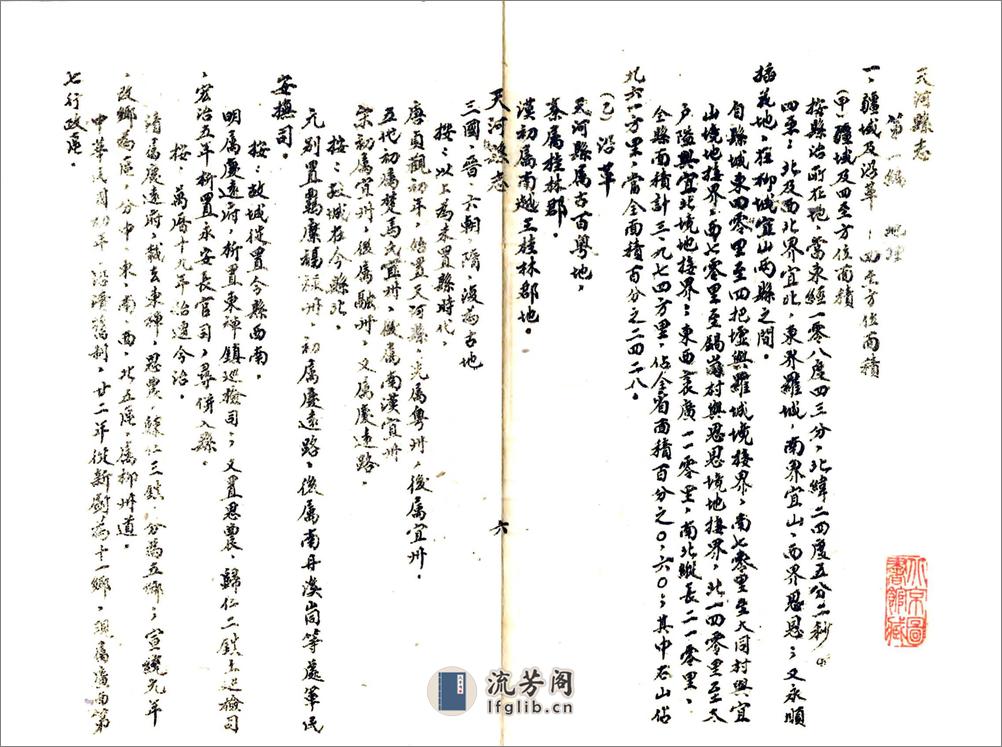 天河縣志
第一編 地理
一、疆域及沿革:四至方位面積
(甲)疆域及四至方位面積
按縣治所在地,當東經一零八度四三分,北緯二四度五分二秒,
四至:北及西北界宜北,東界羅城,南界宜山,西界思恩;又永順
插花地,在柳城宜山兩縣之間。
自縣城東四零里至四把墟與羅城境接界,南七零里至大同村與宜
山境地接界,西七零里至錫 村與思恩境地接界,北一四零里至
隘與宜北境地接界;東西袤廣一一零里,南北縱長二一零里,
全縣面積計三九七四方里,佔全省面積百分之0.六0;其中石山佔
九六一方里,當全面積百分之二四二八。
(乙)沿革
天河縣屬古百粵地,
秦屬桂林郡。
漢初屬南越王桂林郡地。
天河縣志
六
三國、晉、六朝、隋、復為古地
按:以上為未置縣時代。
唐貞觀初年,始置天河縣,先屬粵州,後屬宜州。
五代初屬楚馬氏宜州,後屬南漢宜州
宋初屬宜州,後屬融州,又屬慶遠路。
按:故城在今縣北。
元別置羈縻福祿州,初屬慶遠路,後屬南丹溪峒等處軍民
安撫司。
按:故城徙置今縣西南。
明屬慶遠府,析置東禪鎮巡檢司;又置思農、歸仁二鎮土巡檢司
、宏治五年析置永安長官司,尋併入縣。
按:萬曆十九年治遷今治。
清屬慶遠府,裁去東禪、思農、歸仁三鎮,分為五鄉;宣統元年
、改鄉為區,分中、東、南、西、北五區,屬柳州道。
中華民國初年,沿清舊制,廿二年從新劃為十一鄉,現屬廣西第
七行政區。
六京圖
書館藏
流芳阁
lfglib.cn